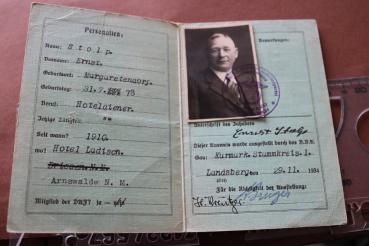 Personalien:
Name: Stolp.
Vorname: Ernst.
Geburtsort: Murguretendorp.
Geburtstag: 31.7. 73
Beruf: Hotelatener.
Jetzige Tätigkeit: "
Seit wann? 1910.
wo? Hotel Ludtson.
Briesen N.M.
Arnswalde N. M.
Mitglied der DAF?
Bemerkungen:
Unterschrift des Inhabers
Ernst Stolp
Dieser Ausweis wurde ausgestellt durch den
Gau: Kurmurk.Stummkreis.1.
Landsberg, den 29.11. 1934
Für die Richtigkeit der Ausstellung: